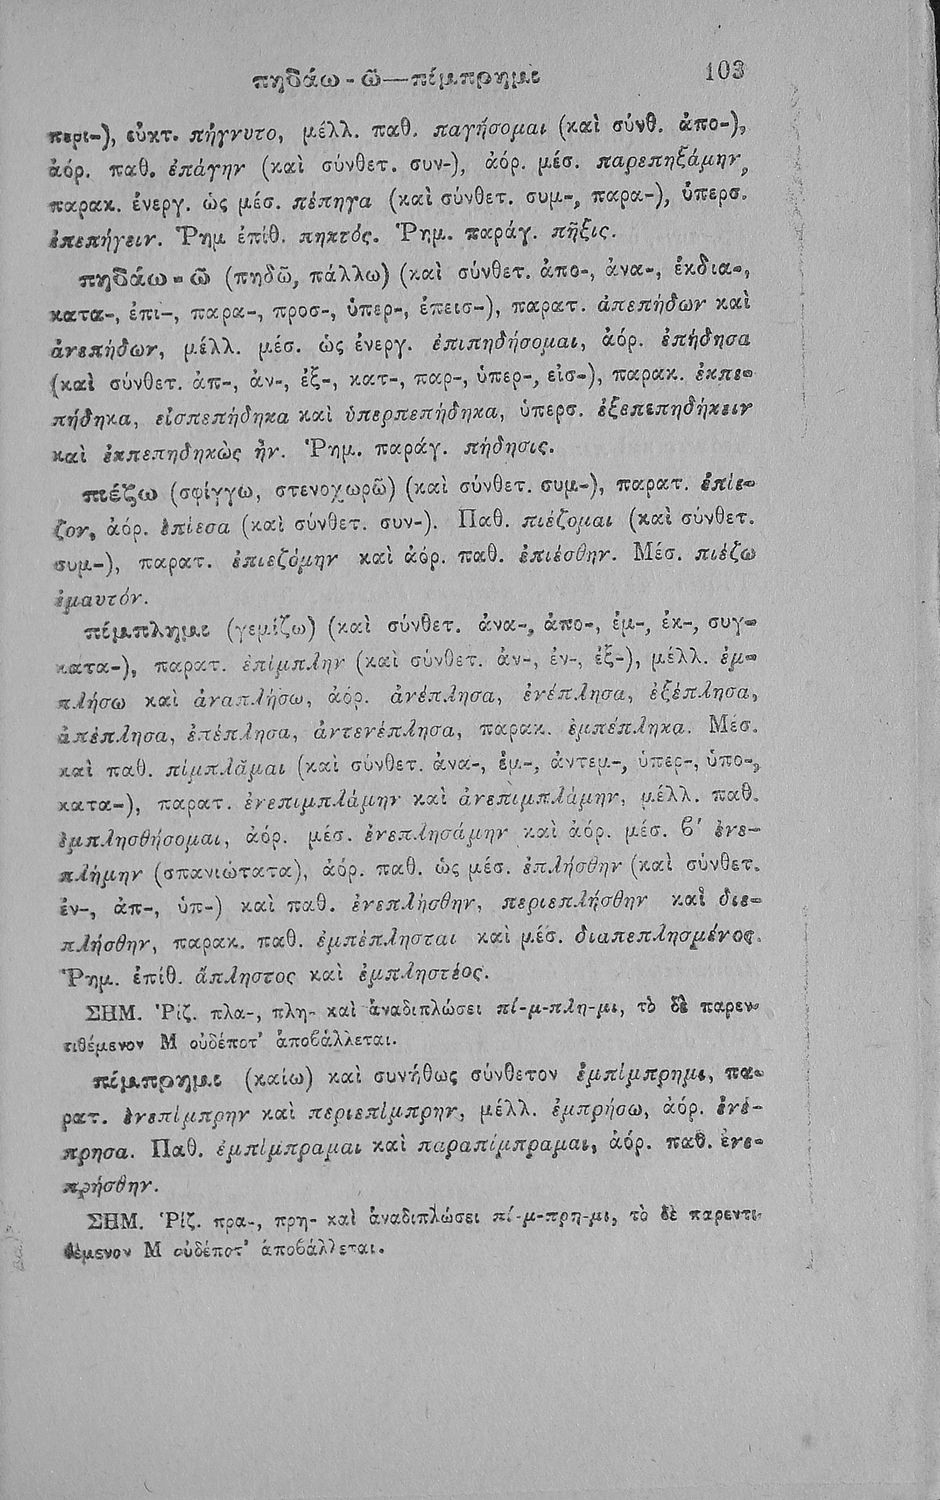 πηδάω - ῶ—πίμπρημι 103
περι-), εὐκτ. πήγνυτο, μέλλ. παθ. παγήσομαι (καὶ σύνθ. ἀπο-),
ἀόρ. παθ. ἐπάγην (καὶ σύνθετ. συν-), ἀόρ. μέσ. παρεπηξάμην,
παρακ. ἐνεργ. ὡς μέσ. πέπηγα (καὶ σύνθετ. συμ-, παρα-), ὑπερσ.
ἐπεπήγειν. Ῥημ. ἐπίθ. πηκτός. Ῥημ. παράγ. πῆξις.
πηδάω - ῶ (πηδῶ, πάλλω) (καὶ σύνθετ. ἀπο-, ἀνα-, ἐκδια-,
κατα-, ἐπι-, παρα-, προσ-, ὑπερ-, ἐπεισ-), παρατ. ἀπεπήδων καὶ
ἀνεπήδων, μέλλ. μέσ. ὡς ἐνεργ. ἐπιπηδήσομαι, ἀόρ. ἐπήδησα
(καὶ σύνθετ. ἀπ-, ἀν-, ἐξ-, κατ-, παρ-, ὑπερ-, εἰσ-), παρακ. ἐκπε-
πήδηκα, εἰσπεπήδηκα καὶ ὑπερπεπήδηκα, ὑπερσ. ἐξεπεπηδήκειν
καὶ ἐκπεπηδηκὼς ἦν. Ῥημ. παράγ. πήδησις.
πιέζω (σφίγγω, στενοχωρῶ) (καὶ σύνθετ. συμ-), παρατ. ἐπίε-
ζον, ἀόρ. ἐπίεσα (καὶ σύνθετ. συν-). Παθ. πιέζομαι (καὶ σύνθετ.
συμ-), παρατ. ἐπιεζόμην καὶ ἀόρ. παθ. ἐπιέσθην. Μέσ. πιέζω
ἐμαυτόν.
πίμπλημι (γεμίζω) (καὶ σύνθετ. ἀνα-, ἀπο-, ἐμ-, ἐκ-, συγ-
κατα-), παρατ. ἐπίμπλην (καὶ σύνθετ. ἀν-, ἐν-, ἐξ-), μέλλ. ἐμ-
πλήσω καὶ ἀναπλήσω, ἀόρ. ἀνέπλησα, ἐνέπλησα, ἐξέπλησα,
ἀπέπλησα, ἐπέπλησα, ἀντενέπλησα, παρακ. ἐμπέπληκα. Μέσ.
καὶ παθ. πίμπλᾰμαι (καὶ σύνθετ. ἀνα-, ἐμ-, ἀντεμ-, ὑπερ-, ὑπο-,
κατα-), παρατ. ἐνεπιμπλάμην καὶ ἀνεπιμπλάμην, μέλλ. παθ.
ἐμπλησθήσομαι, ἀόρ. μέσ. ἐνεπλησάμην καὶ ἀόρ. μέσ. ϐ′ ἐνε-
πλήμην (σπανιώτατα), ἀόρ. παθ. ὡς μέσ. ἐπλήσθην (καὶ σύνθετ.
ἐν-, ἀπ-, ὑπ-) καὶ παθ. ἐνεπλήσθην, περιεπλήσθην καὶ διε-
πλήσθην, παρακ. παθ. ἐμπέπλησται καὶ μέσ. διαπεπλησμένος.
Ῥημ. ἐπίθ. ἄπληστος καὶ ἐμπληστέος.
ΣΗΜ. Ῥίζ. πλα-, πλη- καὶ ἀναδιπλώσει πί-μ-πλη-μι, τὸ δὲ παρεν-
τιθέμενον Μ οὐδέποτ' ἀποϐάλλεται.
πίμπρημι (καίω) καὶ συνήθως σύνθετον ἐμπίμπρημι, πα-
ρατ. ἐνεπίμπρην καὶ περιεπίμπρην, μέλλ. ἐμπρήσω, ἀόρ. ἐνέ-
πρησα. Παθ. ἐμπίμπραμαι καὶ παραπίμπραμαι, ἀόρ. παθ. ἐνε-
πρήσθην.
ΣΗΜ. Ῥίζ. πρα-, πρη- καὶ ἀναδιπλώσει πί-μ-πρη-μι, τὸ δὲ παρεντι-
θέμενον Μ οὐδέποτ' ἀποϐάλλεται.